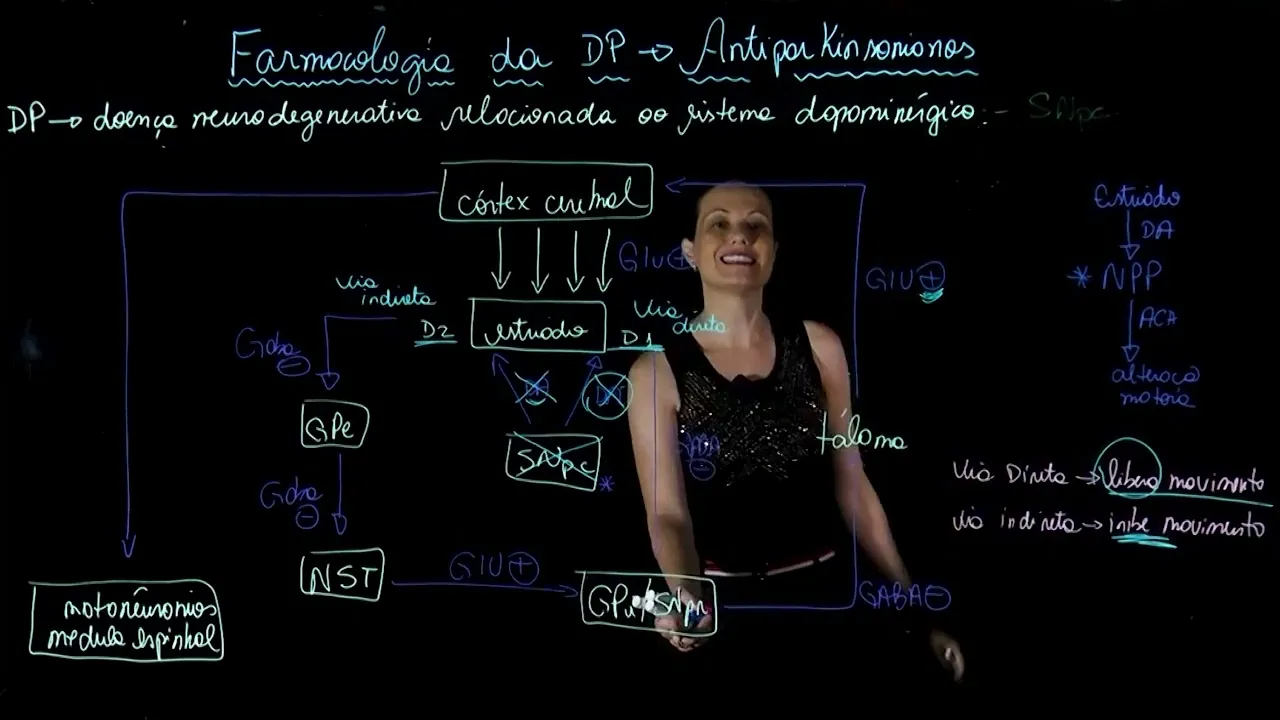 Farmacologia da DP → Antiparkinsonianos
DP → doença neurodegenerativa relacionada ao sistema dopaminérgico: - SNpc
córtex cerebral
GLU +
GLU +
Estriado
DA
* NPP
ACA
alteraçã
motora
via
indireta
D2
estriado
D1
via
direta
Gaba
-
DA
DA
GPe
SNpc
*
GABA
-
tálamo
Gaba
-
via Direta → libera movimento
via indireta → inibe movimento
NST
GLU +
GPi/SNpr
GABA -
motoneurônios
medula espinhal